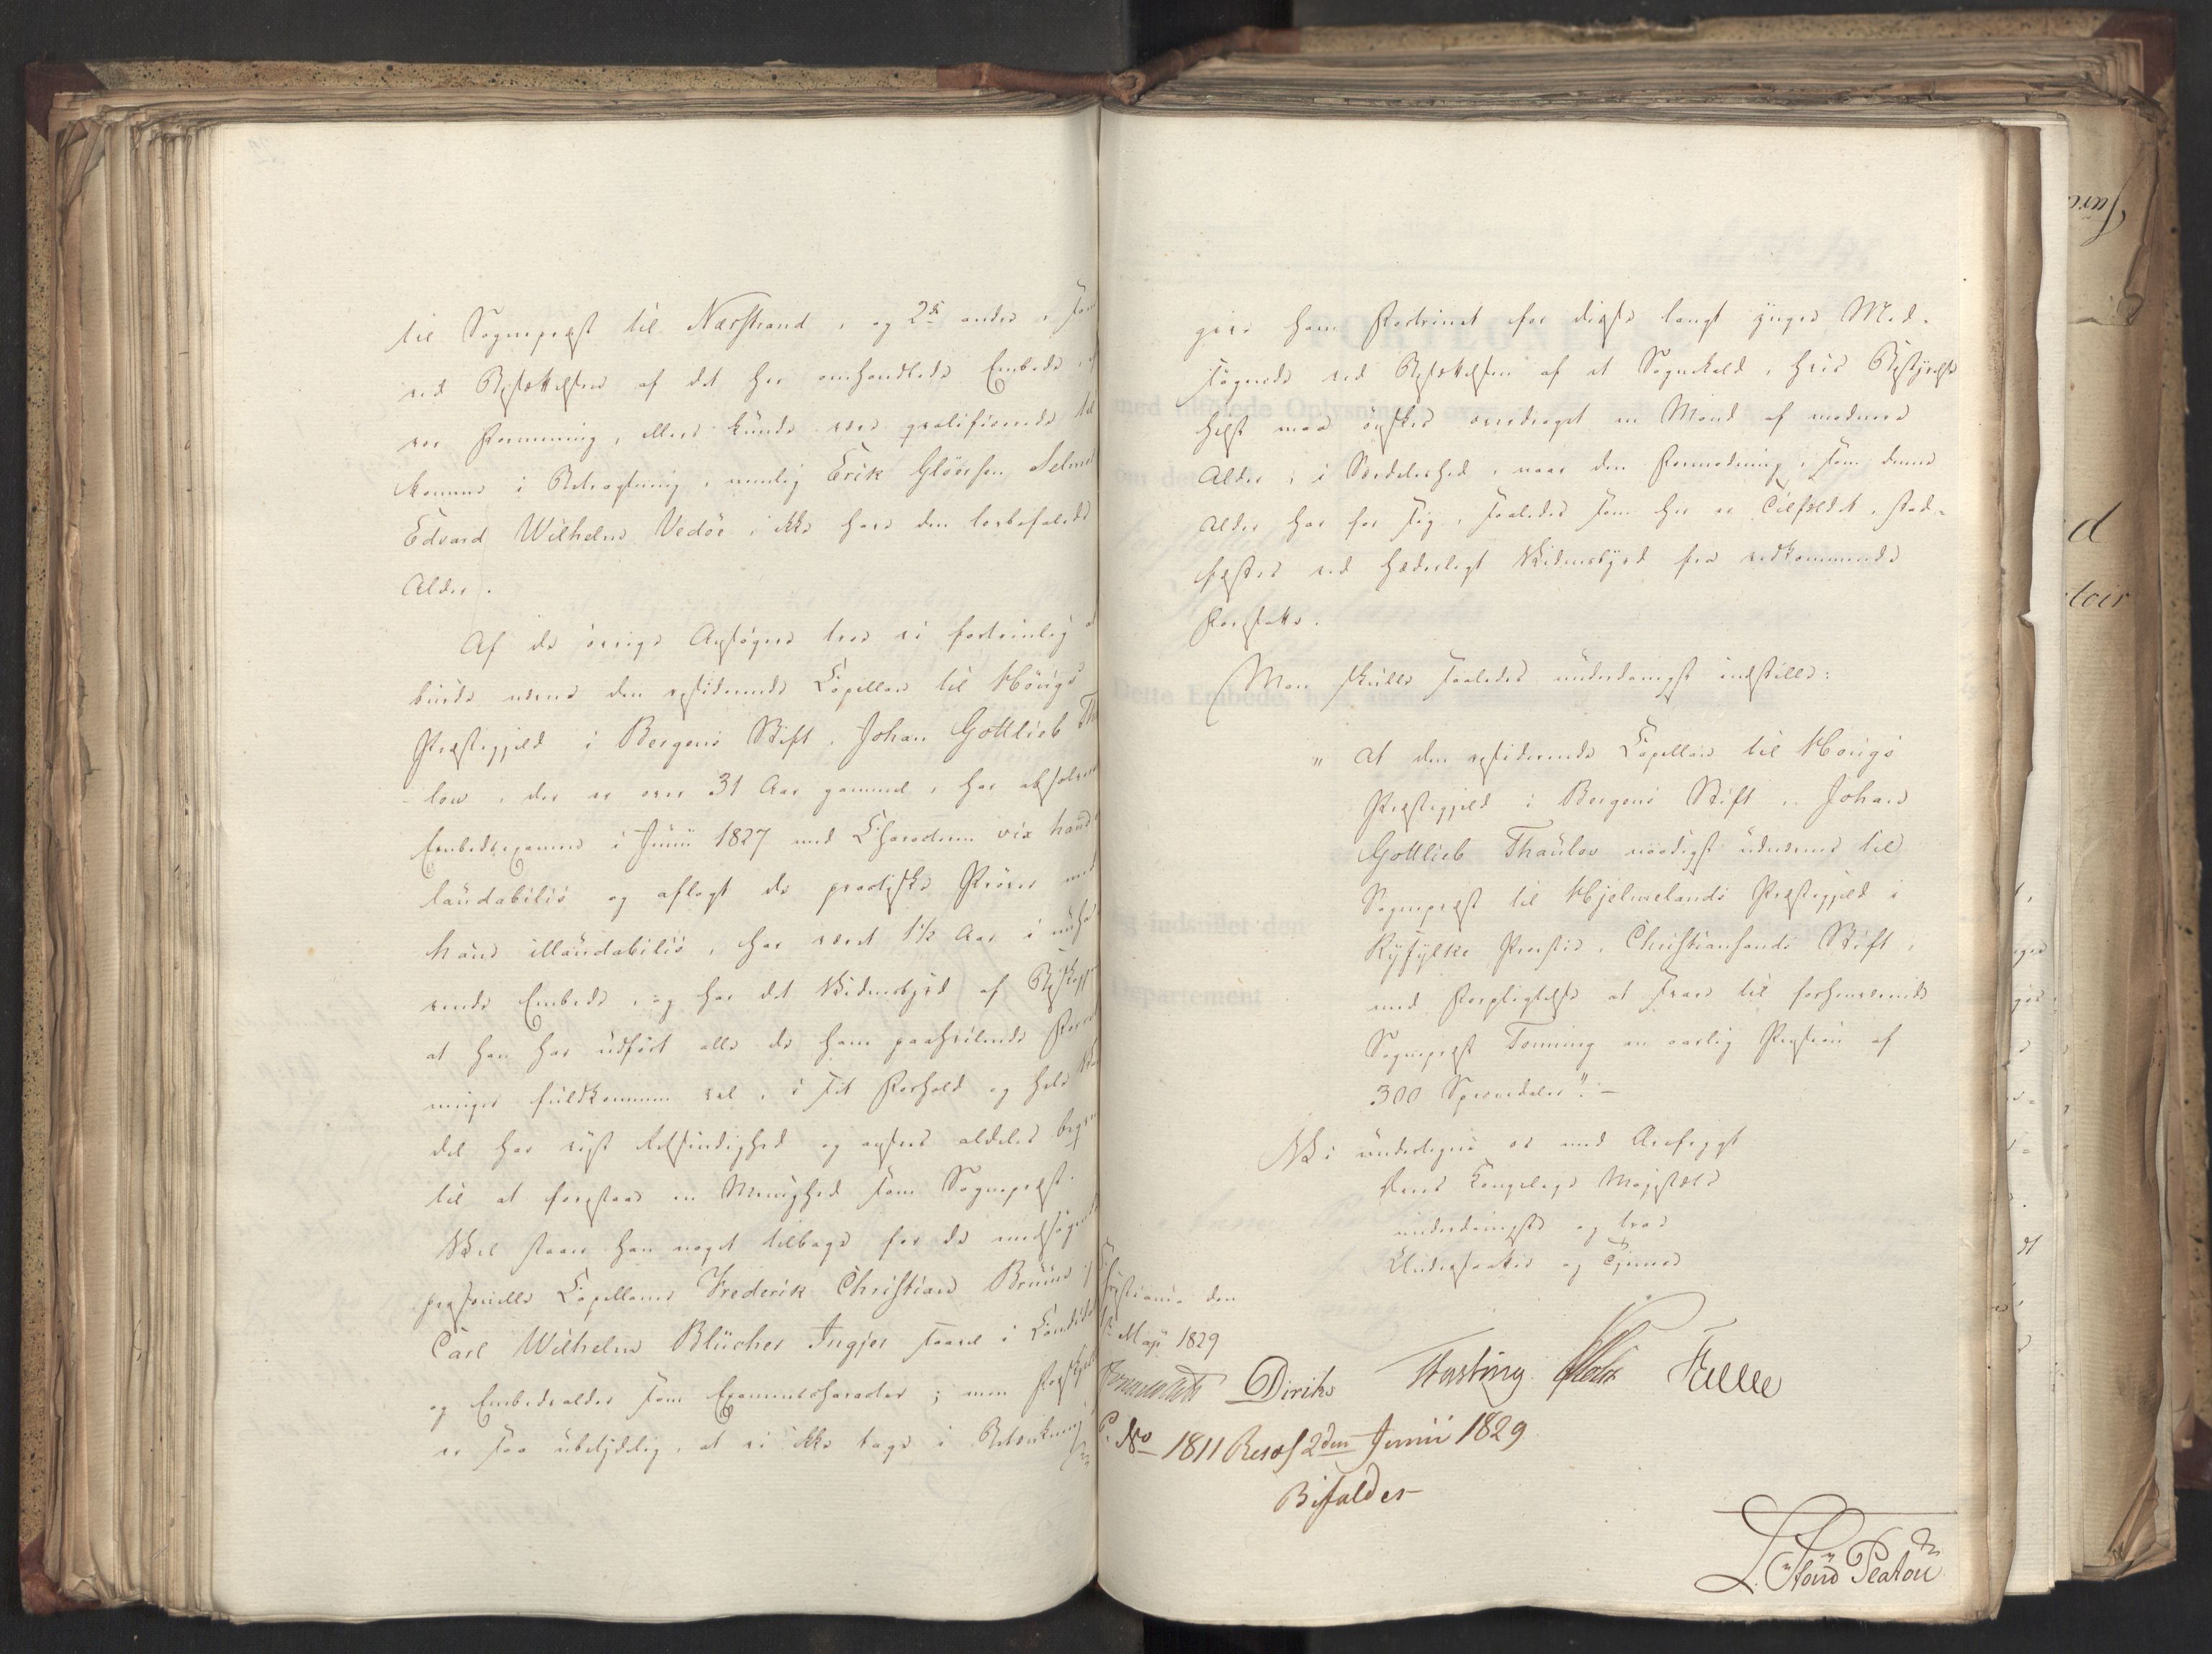 til Sognepræst til Nærstrand, og 2de andre, som
ved Besættelsen af det her omhandlede Embede, ef
vor Formening, ellers kunde være qvalificerede til
komme i Betragtning, nemlig Erik Glöersen Selmer
Edvard Wilhelm Vedöe, ikke have den lovbefalede
Alder.
Af de övrige Ansögere troe vi fortrinlig at
burde nævne den residerende Capellan til Houigs
Præstegjeld i Bergens Stift, Johan Gottlieb Th
low, der er over 31 Aar gammel, har absolver
Embedsexamen i Junii 1827 med Characteren vix haud
laudabilis og aflagt de practiske Pröver med
haud illaudabilis, har været 1½ Aar i nuhæ
rende Embede, og har det Vidnesbyrd af Biskoppen
at han har udført alle de ham paahvilende Forret
ninger fuldkommen vel, i sit Forhold og hele
del har viist Retsindighed og ansees aldeles
til at forestaae en Menighed som Sognepræst.
Vel staaer han noget tilbage for de medsögende
personelle Capellaner Frederik Christian Bruun
Carl Wilhelm Blücher Ingjer saavel i Candidat
og Embedsalder som Examenscharacter; men Forskjel
er saa ubetydelig, at vi ikke tage i Betænkning
give ham Fortrinet for disse langt yngre Med-
sögende ved Besættelsen af et Sognekald, hvis Bestyrelse
helst maa önskes overdraget en Mand af modnere
Alder, i Særdeleshed, naar den Formodning, som denne
Alder har for sig, saaledes som her er Tilfældet, stad-
fæstes ved hæderligt Vidnesbyrd fra vedkommende
Foresatte.
Man skulle saaledes underdanigst indstille:
" At den residerende Capellan til Houigs
Præstegjeld i Bergens Stift, Johan
Gottlieb Thaulow naadigst udnævnes til
Sognepræst til Hjelmelands Præstegjeld i
Ryfylke Provstie, Christiansands Stift,
med Forpligtelse at svare til forhenværende
Sognepræst Tonning en aarlig Pension af
300 Speciedaler". –
Vi undertegne os med Ærefrygt
Deres Kongelige Majestæts
underdanigste og troe
Undersaatter og Tjenere
Christiania den
Maji 1829
Diriks Fasting Holst Falbe
P. No 1811 Resol 2den Junii 1829
Bifaldes